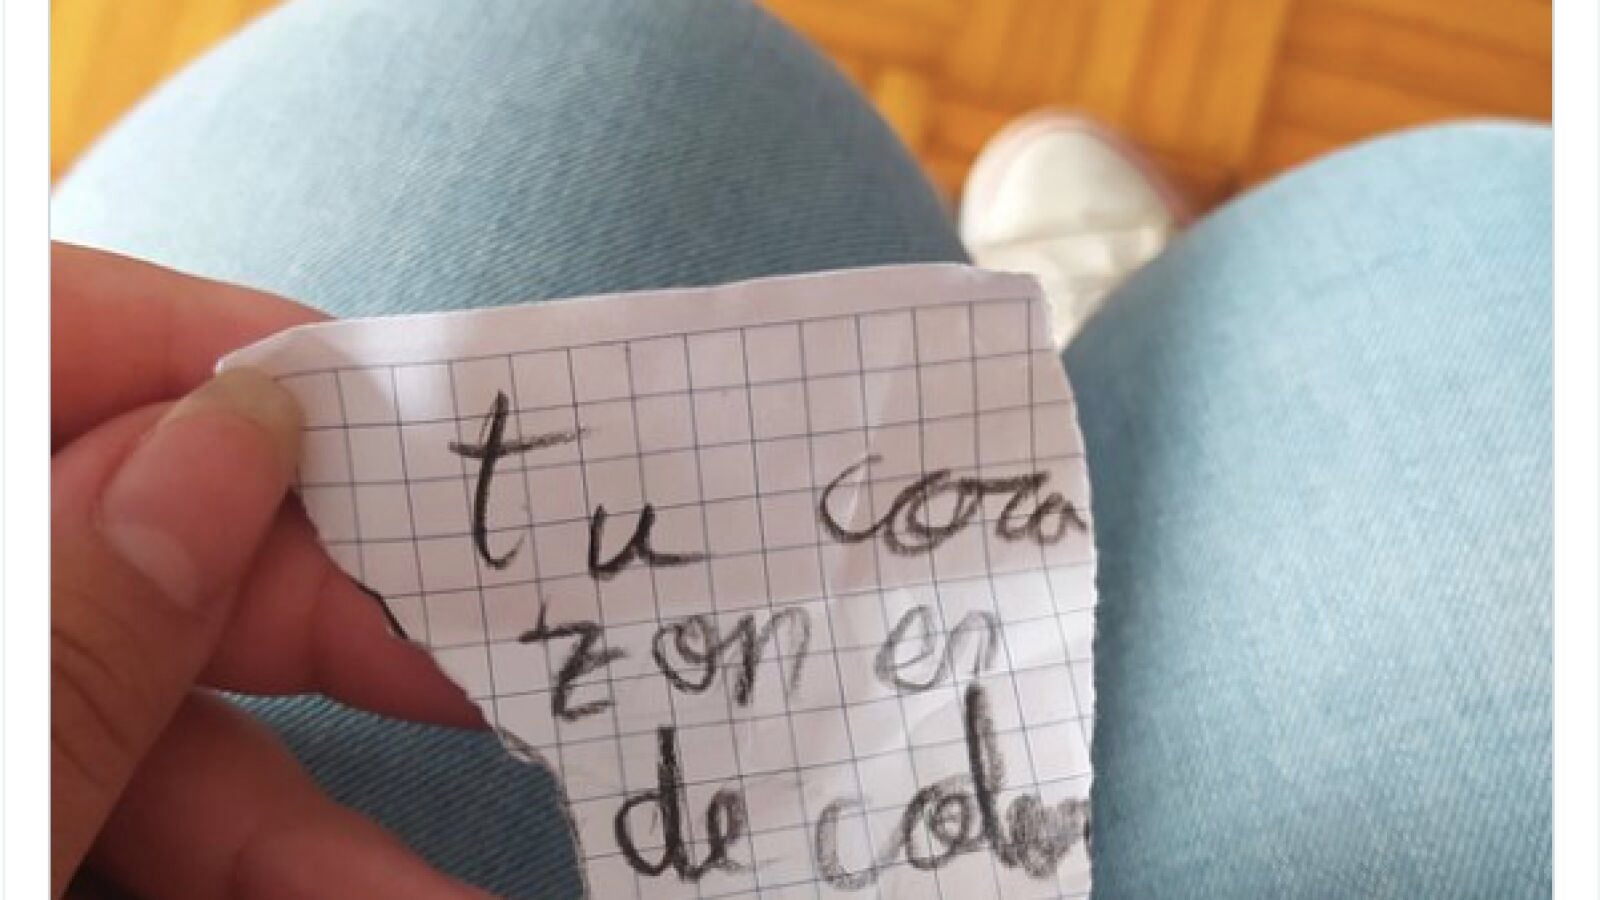 tu cora
zon en
de color